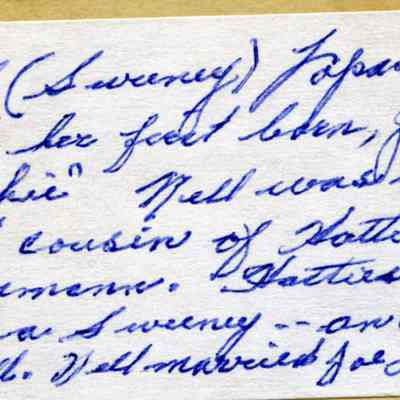 (Sweeney)
her first born,
Nell was
cousin of Hattie
Hatties
a Sweeney -- an
Nell married Joe